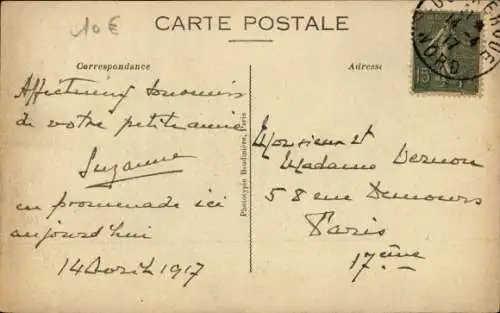 10 €
CARTE POSTALE
Correspondance
Adresse
DUNKERQUE
17
NORD
15
Affectueux souvenirs
de votre petite amie
Suzanne
en promenade ici
aujourd'hui
14 Avril 1917
Phototypie Baudinière, Paris
Monsieur et
Madame Vernon
58 rue Demours
Paris
17ème